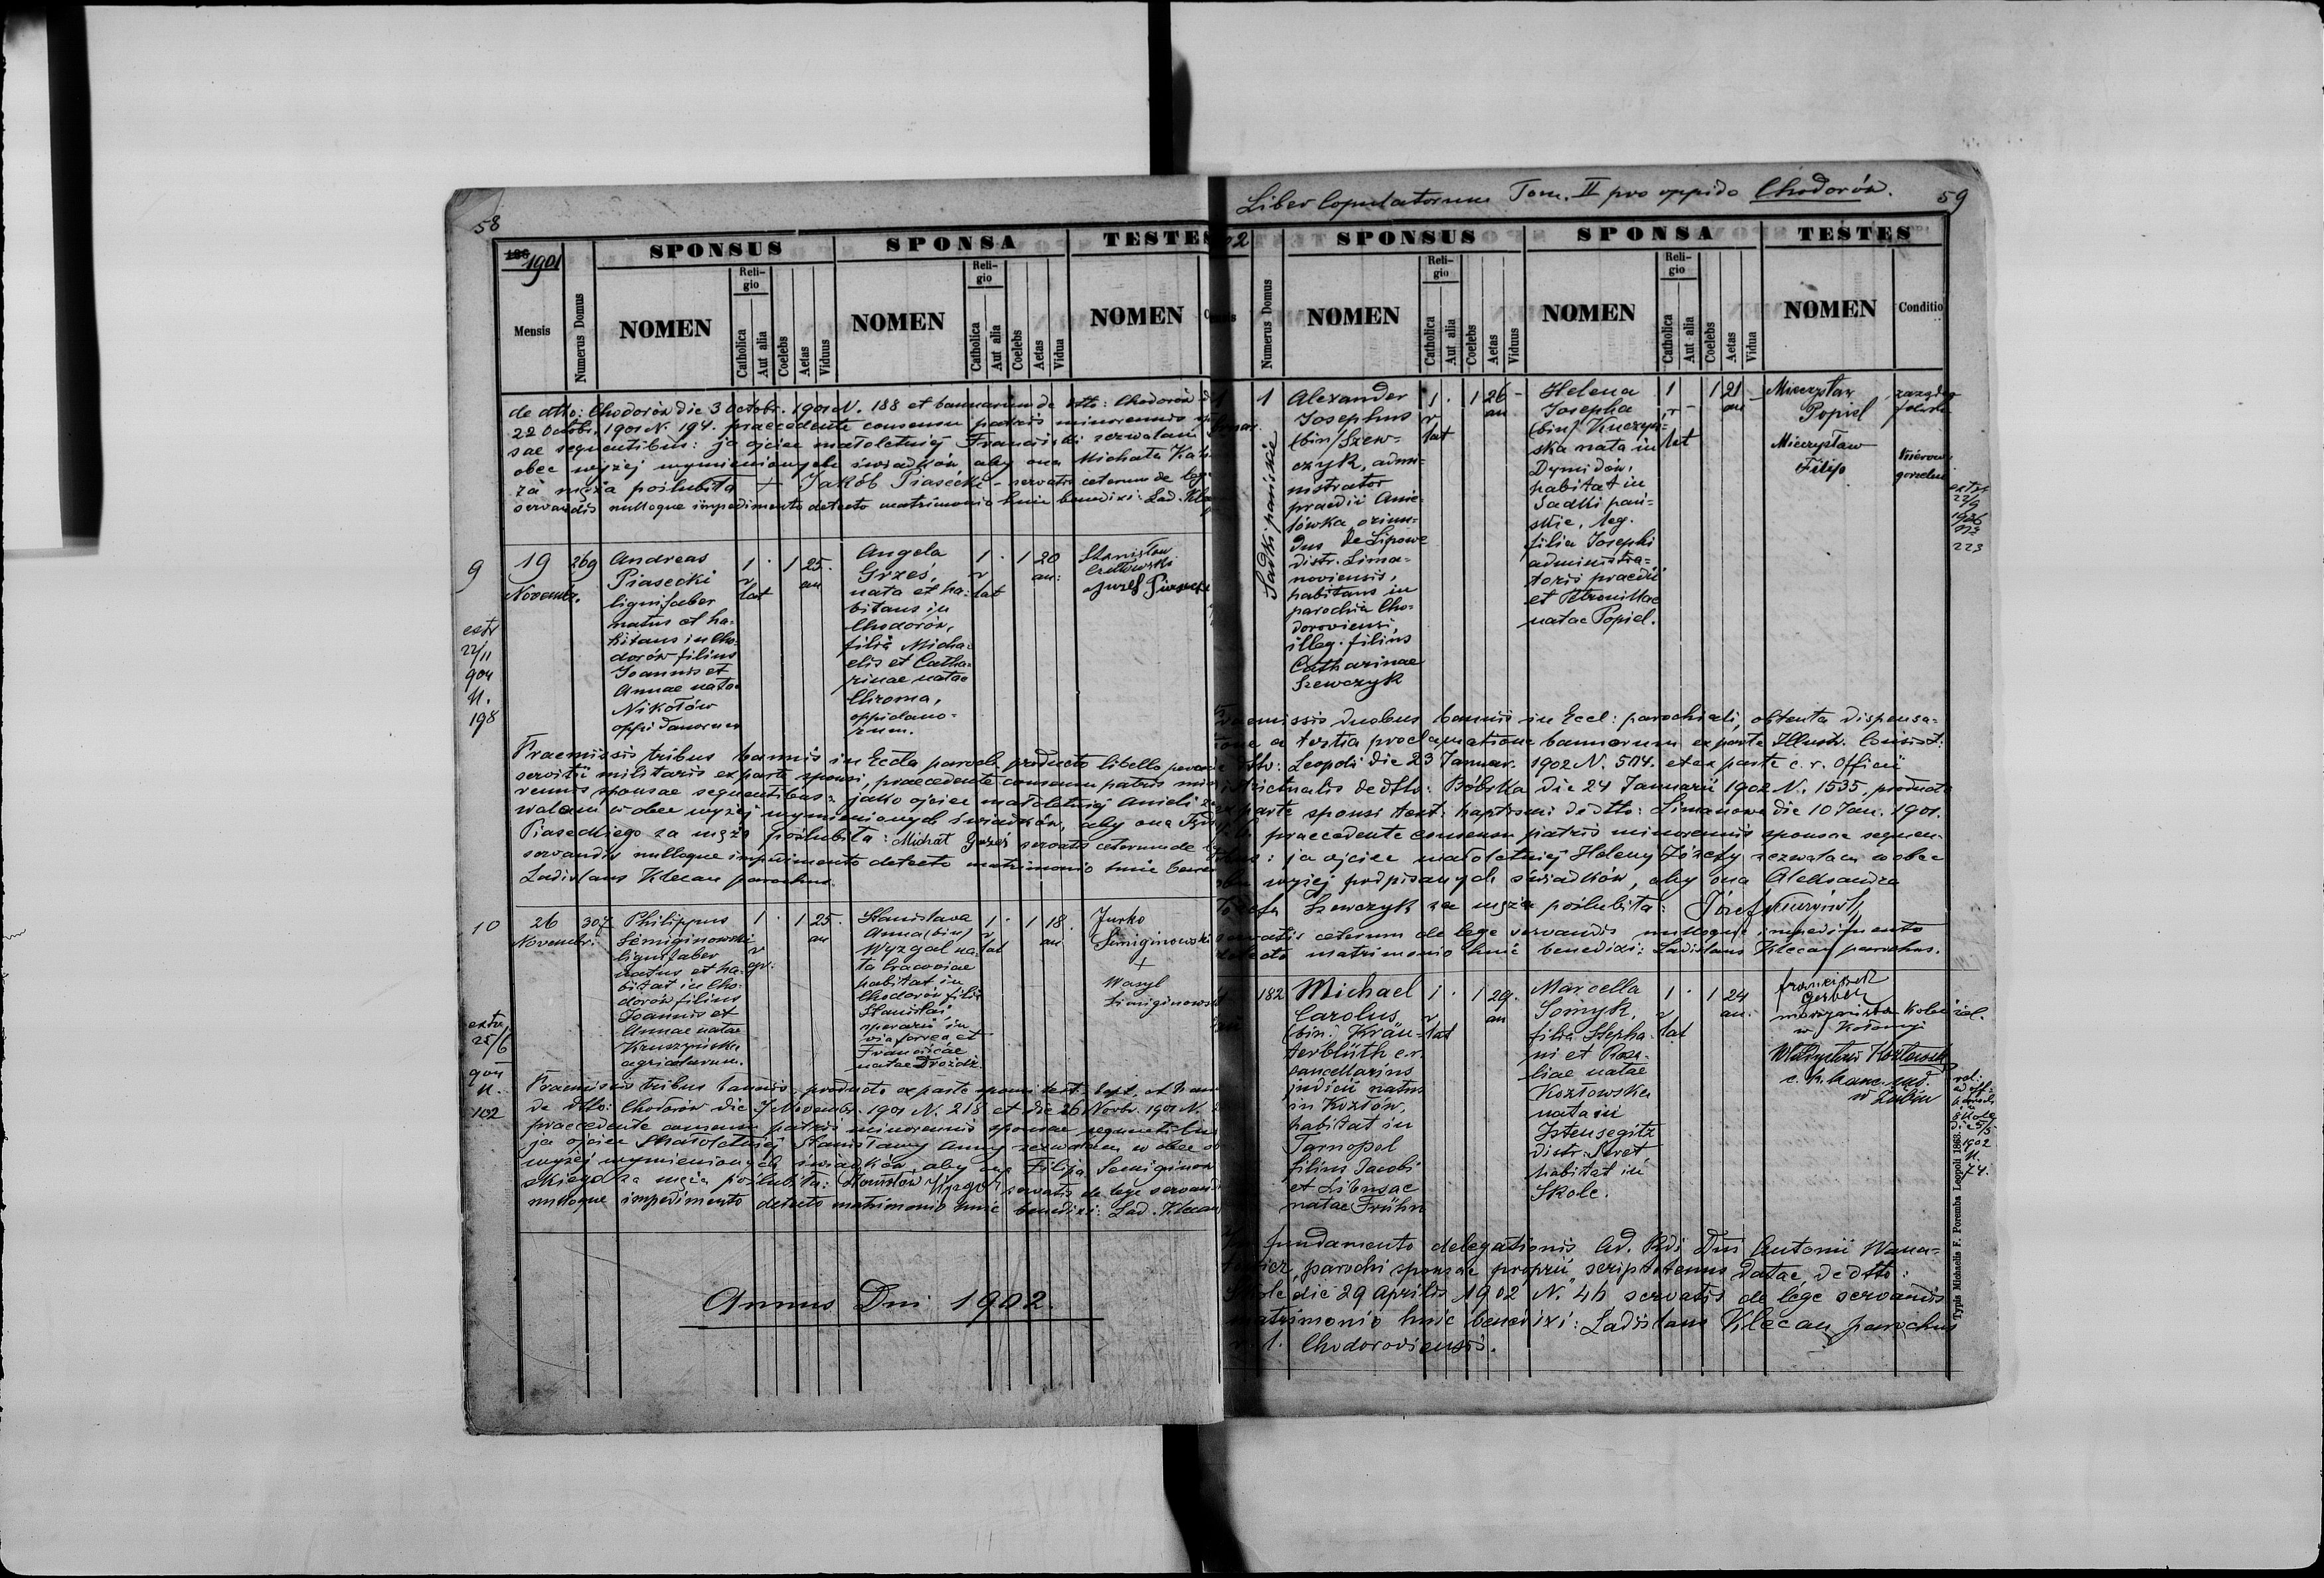 58
1901
Mensis
Numerus Domus
SPONSUS
NOMEN
Religio
Catholica
Aut alia
Coelebs
Aetas
Viduus
SPONSA
NOMEN
Religio
Catholica
Aut alia
Coelebs
Aetas
Vidua
TESTES
NOMEN
de dtto: Chodorów die 3 Octobr. 1901 N. 188 et bannorum de dtto: Chodorów
22 Octobr. 1901 N. 194. praecedente consensu patris minorennis
sae sequentibus: ja ojciec małoletniej Franciszki zezwalam
obec wyżej wymienionych świadków, aby ona Michała
za męża poślubiła + Jakób Piasecki - servatis ceterum de lege
servandis nulloque impedimento detecto matrimonio huic benedixi: Lad. Klecan
9
19
Novembr.
269
Andreas
Piasecki
lignifaber
natus et ha-
bitans in Cho-
dorów filius
Joannis et
Annae natae
Nikołów
oppidanorum
1
r
lat
1
25
an
Angela
Grześ,
nata et ha-
bitans in
Chodorów,
filia Micha-
elis et Catha-
rinae natae
Chroma,
oppidano-
rum.
1
r
lat
1
20
an:
Stanisław
Józef Piasecki
extr
22/11
904
N.
198
Praemissis tribus bannis in Eccla paroch. producto libello
servitii militaris ex parte sponsi, praecedente consensu patris
rennis sponsae sequentibus: jako ojciec małoletniej Anieli
walam w obec wyżej wymienionych świadków, aby ona
Piaseckiego za męża poślubiła: Michał Grześ servatis ceterum de
servandis nulloque impedimento detecto matrimonio huic
Ladislaus Klecan parochus.
10
26
Novembr:
307
Philippus
Semiginowski
lignifaber
natus et ha-
bitat in Cho-
dorów filius
Joannis et
Annae natae
Kruszyńska
agricolarum.
1
r
gr.
1
25
an
Stanislava
Anna (bin)
Wyzgal na-
ta Cracoviae
habitat in
Chodorów filia
Stanislai
operarii in
via ferrea et
Franciscae
natae Drożdż.
1
r
lat
1
18
an
Jurko
Semiginowski
+
Wasyl
Simiginowski
extr
25/6
904
N.
102
Praemissis tribus bannis, producto ex parte sponsi test. bapt. et
de dtto: Chodorów die 7 Novembr. 1901 N. 218 et die 26 Novbr. 1901 N.
praecedente consensu patris minorennis sponsae sequentibus
ja ojciec małoletniej Stanisławy Anny zezwalam w obec
wyżej wymienionych świadków, aby ona Filipa Semiginow
skiego za męża poślubiła: Stanisław Wyzgał servatis de lege servandis
nulloque impedimento detecto matrimonio huic benedixi: Lad. Klecan
Annus Dni 1902.
Liber Copulatorum Tom. II pro oppido Chodorów.
59
Numerus Domus
SPONSUS
NOMEN
Religio
Catholica
Aut alia
Coelebs
Aetas
Viduus
SPONSA
NOMEN
Religio
Catholica
Aut alia
Coelebs
Aetas
Vidua
TESTES
NOMEN
Conditio
1
Sadki pańskie
Alexander
Josephus
(bin) Szew-
czyk, admi-
nistrator
praedii Anie-
lówka, oriun-
dus de Lipowe
distr. Lima-
noviensis,
habitans in
parochia Cho-
doroviensi,
illeg. filius
Catharinae
Szewczyk
1
r
lat
1
26
an
Helena
Josepha
(bin) Kuczyń-
ska nata in
Dymidów,
habitat in
Sadki pań-
skie, leg.
filia Josephi
administra-
toris praedii
et Petronillae
natae Popiel.
1
r
lat
1
21
an
Mieczysław
Popiel
Mieczysław
Filip
extr
22/9
1926
223
Praemissis duobus bannis in Eccl: parochiali, obtenta dispensa-
tione a tertia proclamatione bannorum ex parte Illustr. Consist:
dtto: Leopoli die 23 Januar. 1902 N. 504. et ex parte c. r. Officii
districtualis de dtto: Bóbrka die 24 Januarii 1902 N. 1535, producto
ex parte sponsi test: baptismi de dtto: Limanowa die 10 Jan. 1901.
praecedente consensu patris minorennis sponsae sequen-
tibus: ja ojciec małoletniej Heleny Józefy zezwalam w obec
wyżej podpisanych świadków, aby ona Aleksandra
Józefa Szewczyk za męża poślubiła: Józef Kuczyński,
servatis ceterum de lege servandis nulloque impedimento
detecto matrimonio huic benedixi: Ladislaus Klecan parochus.
182
Michael
Carolus
(bin.) Krän-
terblüth c.r.
cancellarius
judicii natus
in Kozłów,
habitat in
Tarnopol
filius Jacobi
et Libusae
natae Frühn
1
r
lat
1
29
an
Marcella
Somyk,
filia Stepha-
ni et Rosa-
liae natae
Kozłowska
nata in
Istensegitz
distr. Seret
habitat in
Skole.
1
r
lat
1
24
an.
Franciszek
Gerbel
maszynista kolei żel.
w Kołomyi
Władysław Kozłowski
c. k. kanc. sąd.
1902
N.
74.
fundamento delegationis Ad. Rdi Dni Antonii
parochi sponsae proprii scriptotenus datae, de dtto:
Skole die 29 Aprilis 1902 N. 46 servatis de lege servandis
matrimonio huic benedixi: Ladislaus Klecan parochus
r. l. Chodoroviensis.
Typis Michaelis F. Poremba Leopoli 1863.